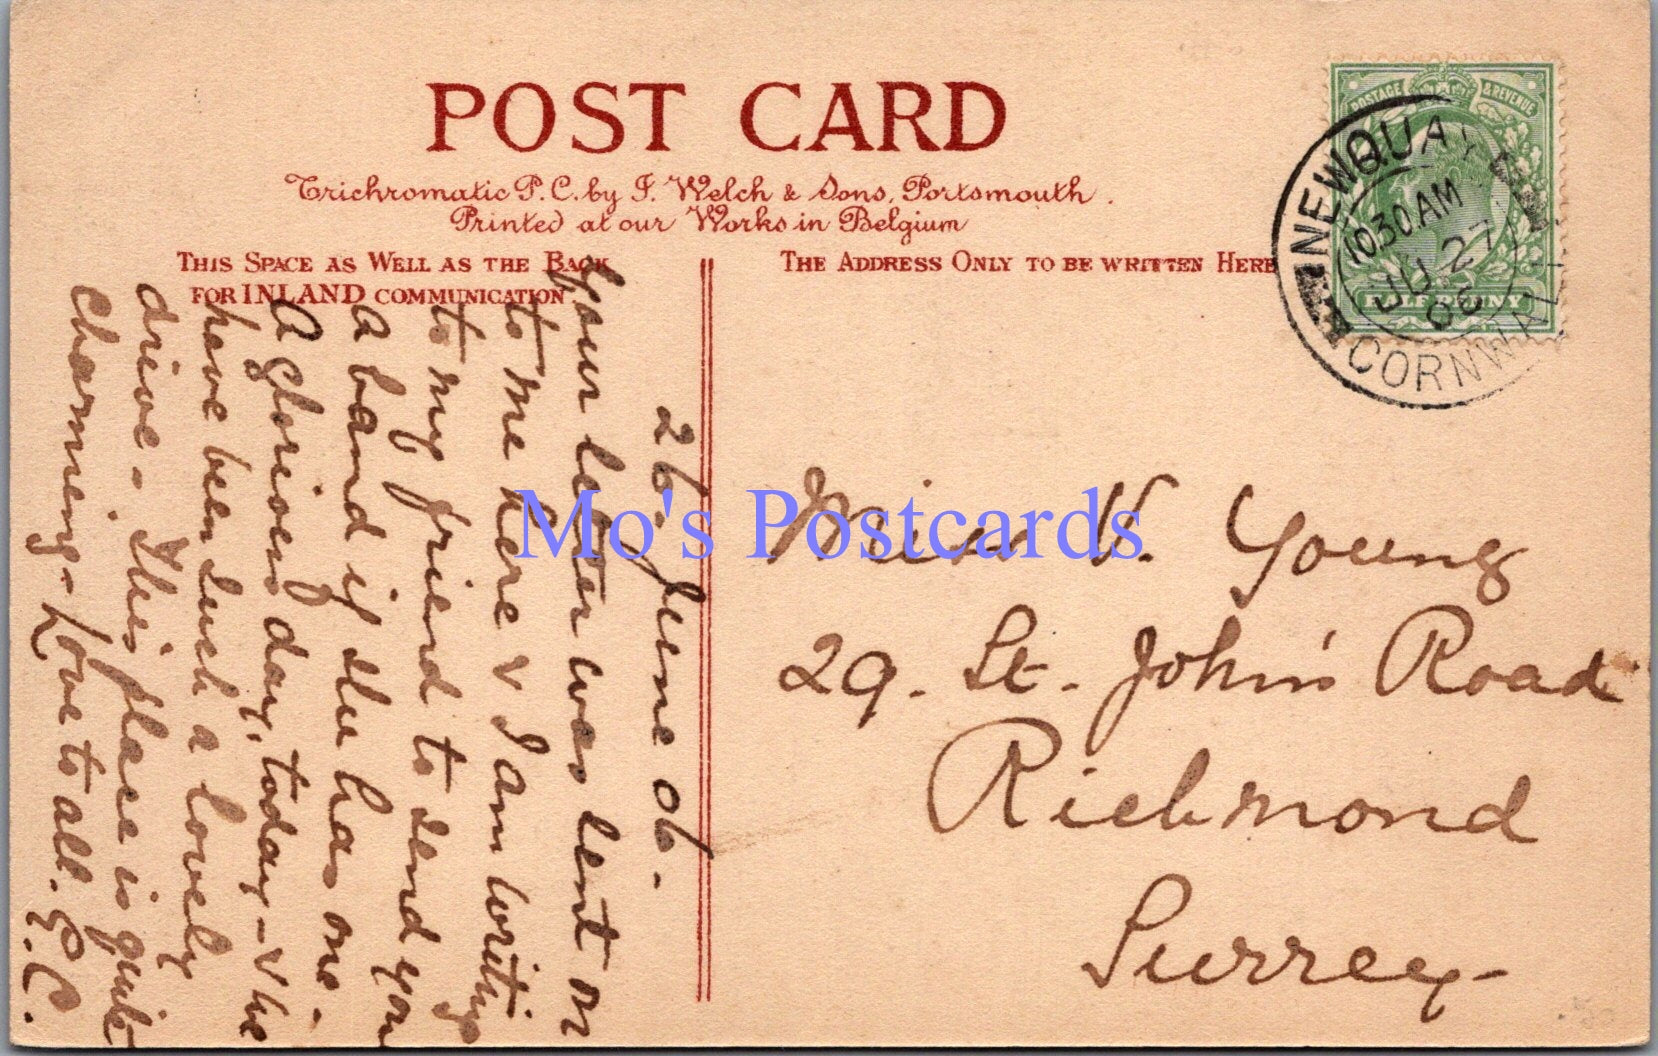 POST CARD
Trichromatic P.C. by J. Welch & Sons, Portsmouth.
Printed at our Works in Belgium
THIS SPACE AS WELL AS THE BACK
FOR INLAND COMMUNICATION
THE ADDRESS ONLY TO BE WRITTEN HERE
POSTAGE & REVENUE
HALFPENNY
NEWQUAY
10.30 AM
JU 27
06
CORNWALL
26. June 06.
Your letter was sent on
to me here & I am writing
to my friend to send you
a band if she has one.
A glorious day, today - & we
have been such a lovely
drive. This place is quite
charming - Love to all. E.C.
Miss V. Young
29. St. John's Road
Richmond
Surrey-
Mo's Postcards